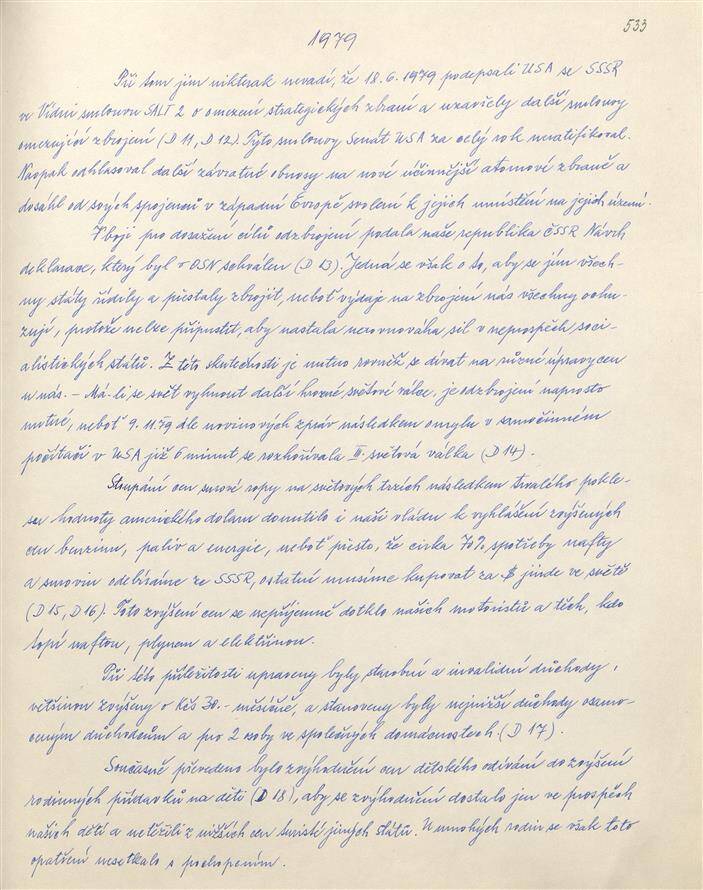 533
1979
Při tom jim nikterak nevadí, že 18.6.1979 podepsali USA se SSSR
ve Vídni smlouvu SALT 2 o omezení strategických zbraní a uzavřely další smlouvy
omezující zbrojení (D 11, D 12). Tyto smlouvy Senát USA za celý rok neratifikoval.
Naopak odhlasoval další závratné obnosy na nové účinnější atomové zbraně a
dosáhl od svých spojenců v západní Evropě svolení k jejich umístění na jejich území.
V boji pro dosažení cílů odzbrojení podala naše republika ČSSR Návrh
deklarace, který byl v OSN schválen (D 13). Jedná se však o to, aby se jím všech-
ny státy řídily a přestaly zbrojit, neboť výdaje na zbrojení nás všechny ochu-
zují, protože nelze připustit, aby nastala nerovnováha sil v neprospěch soci-
alistických států. Z této skutečnosti je nutno rovněž se dívat na různé úpravy cen
u nás. – Má-li se svět vyhnout další hrozné světové válce, je odzbrojení naprosto
nutné, neboť 9.11.79 dle novinových zpráv následkem omylu v samočinném
počítači v USA již 6 minut se rozhořívala III. světová válka (D 14).
Stoupání cen surové ropy na světových trzích následkem trvalého pokle-
su hodnoty amerického dolaru donutilo i naši vládu k vyhlášení zvýšených
cen benzinu, paliv a energie, neboť přesto, že cirka 70% spotřeby nafty
a surovin odebíráme ze SSSR, ostatní musíme kupovat za $ jinde ve světě
(D 15, D 16). Toto zvýšení cen se nepříjemně dotklo našich motoristů a těch, kdo
topí naftou, plynem a elektřinou.
Při této příležitosti upraveny byly starobní a invalidní důchody,
většinou zvýšeny o Kčs 30.- měsíčně, a stanoveny byly nejnižší důchody osamo-
ceným důchodcům a pro 2 osoby ve společných domácnostech (D 17).
Současně převedeno bylo zvýhodnění cen dětského odívání do zvýšení
rodinných přídavků na děti (D 18), aby se zvýhodnění dostalo jen ve prospěch
našich dětí a netěžili z nižších cen turisté jiných států. U mnohých rodin se však toto
opatření nesetkalo s pochopením.